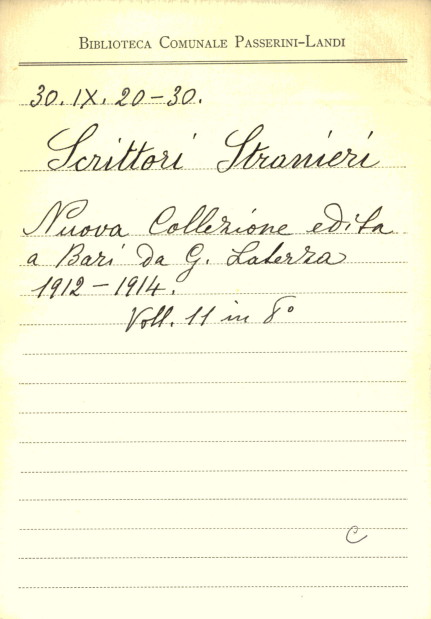 BIBLIOTECA COMUNALE PASSERINI-LANDI
30. IX. 20-30.
Scrittori Stranieri
Nuova Collezione edita
a Bari da G. Laterza
1912-1914.
Voll. 11 in 8°
C